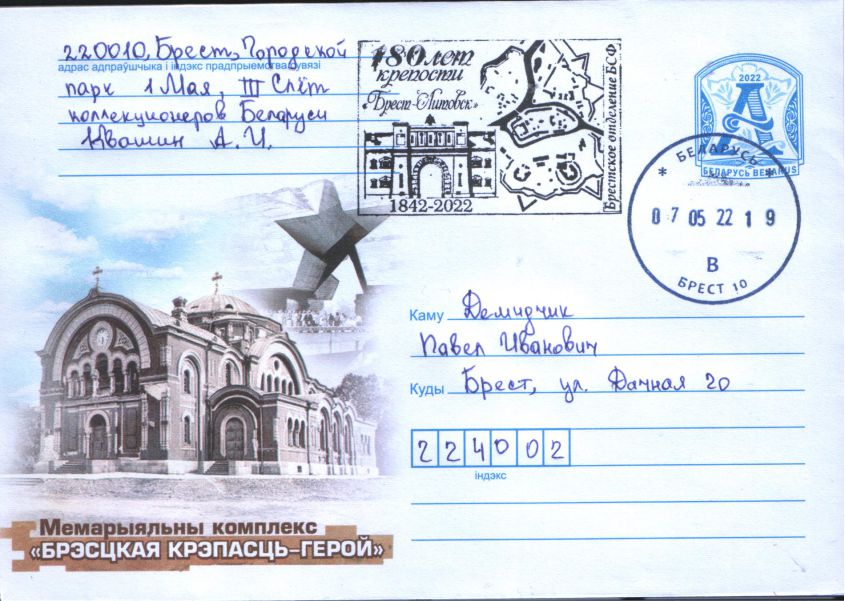 220010, Брест, Городской
адрас адпраўшчыка і індэкс прадпрыемства сувязі
парк 1 Мая, III Слёт
коллекционеров Беларуси
Ивашин А. И.
180 лет
крепости
"Брест-Литовск"
1842-2022
Брестское отделение БСФ
2022
А
БЕЛАРУСЬ BELARUS
* БЕЛАРУСЬ *
07 05 22 19
В
БРЕСТ 10
Каму Демидчик
Павел Иванович
Куды Брест, ул. Дачная 20
224002
індэкс
Мемарыяльны комплекс
«БРЭСЦКАЯ КРЭПАСЦЬ-ГЕРОЙ»